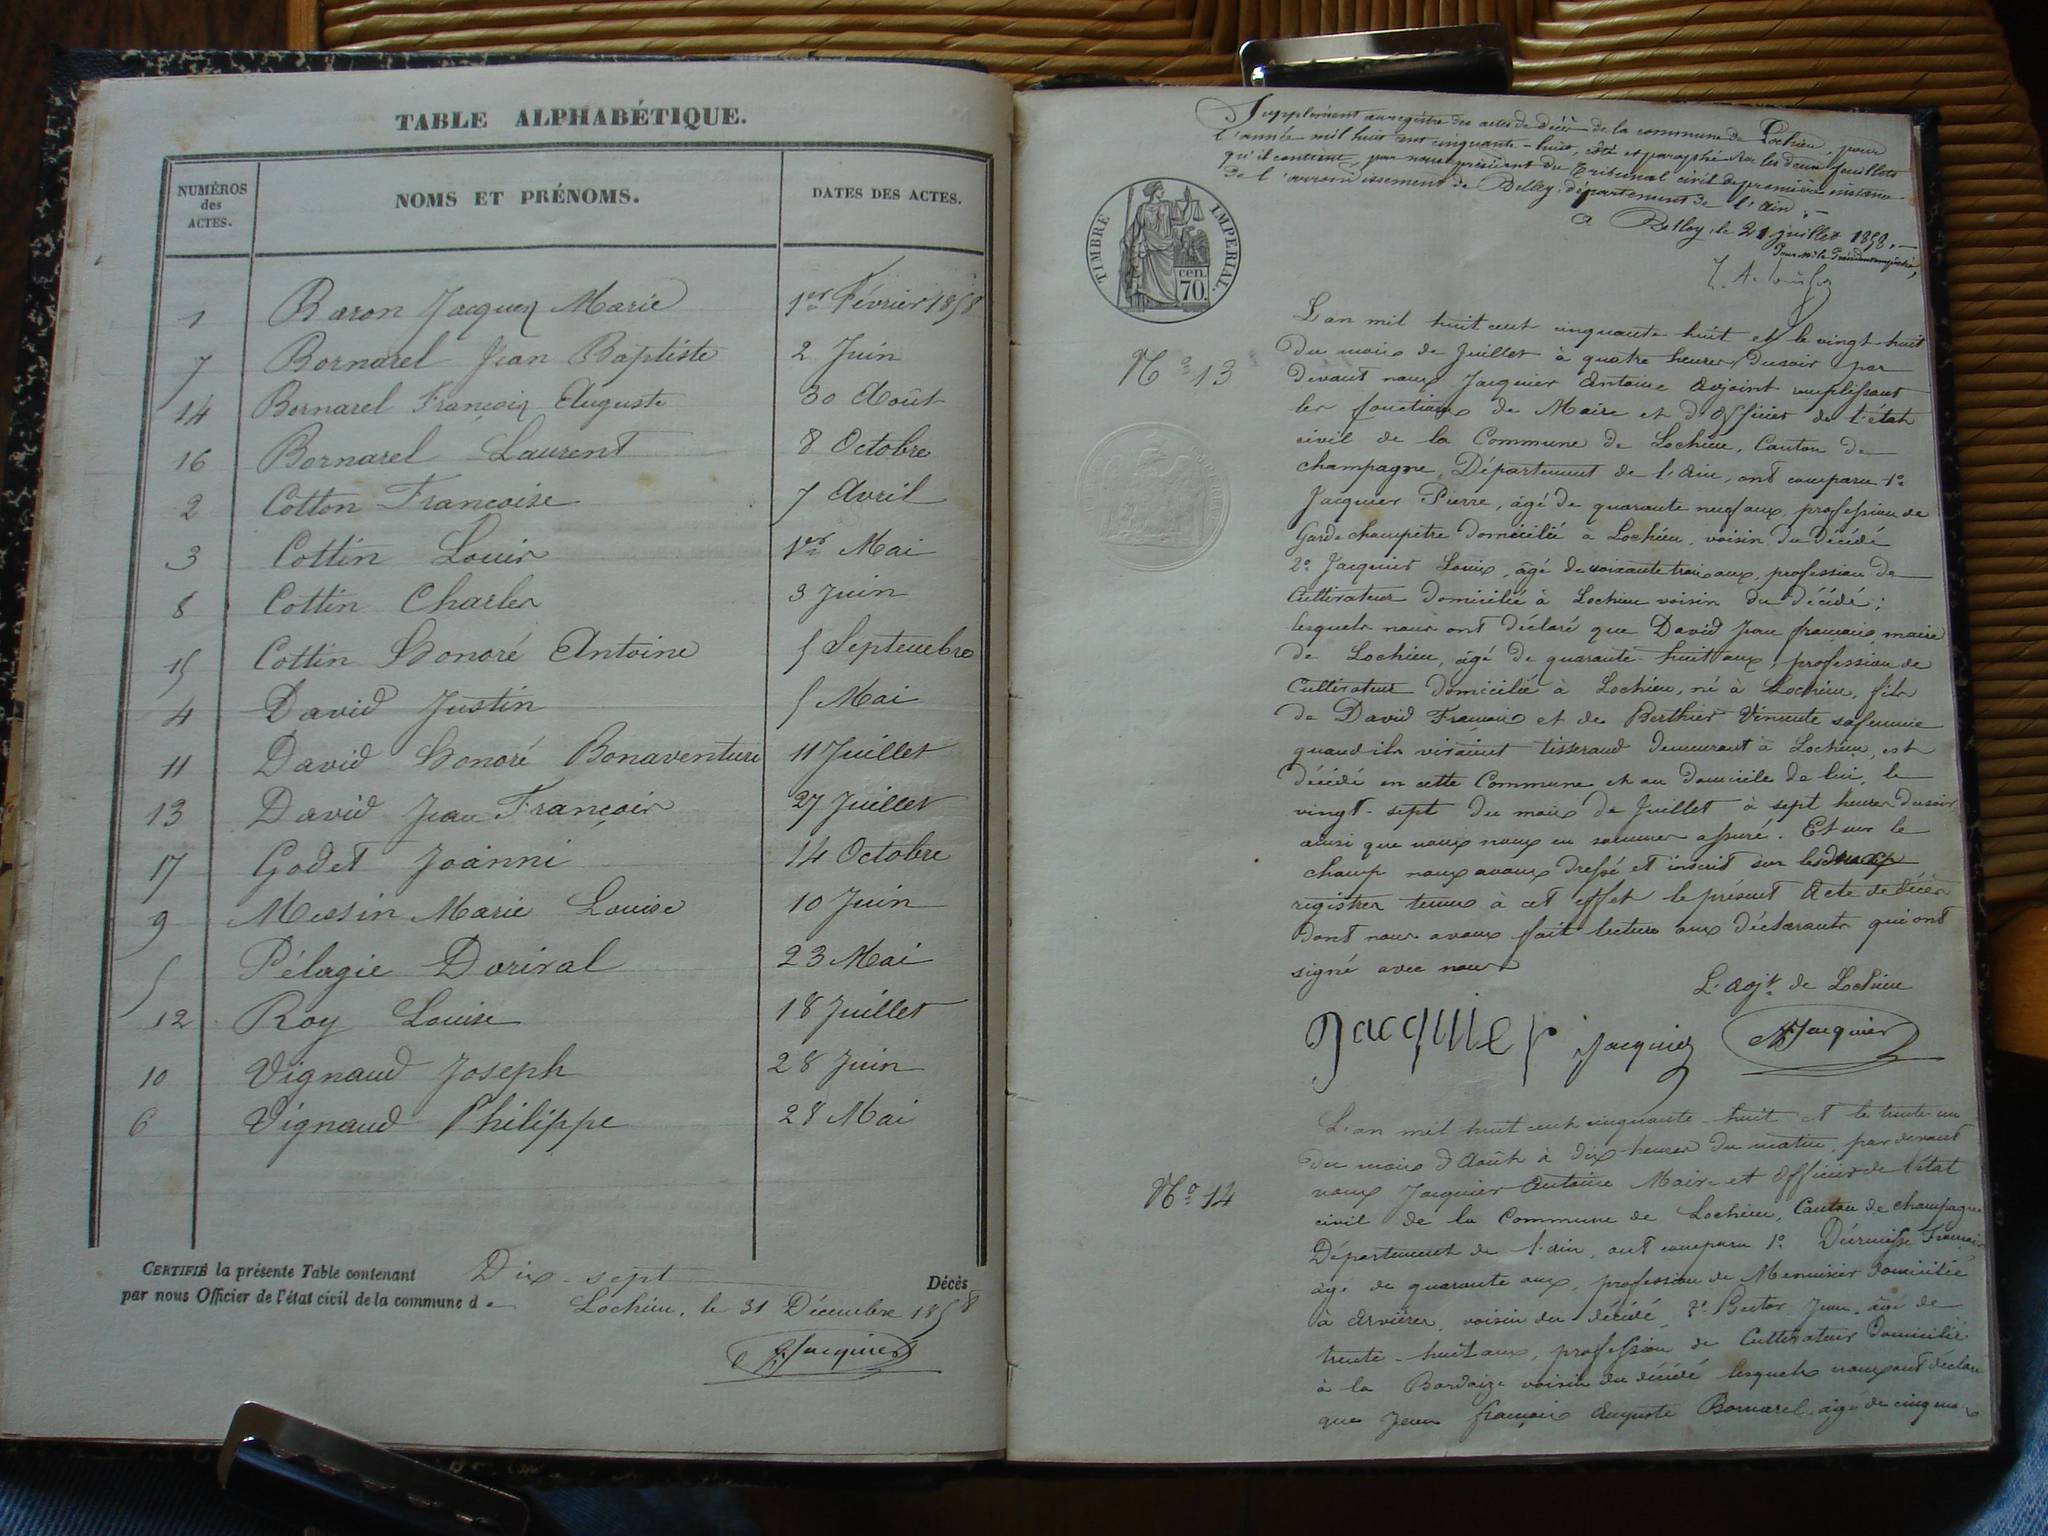 TABLE ALPHABÉTIQUE.
NUMÉROS des ACTES. NOMS ET PRÉNOMS. DATES DES ACTES.
1 Baron Jacques Marie 1er Février 1858
7 Bornarel Jean Baptiste 2 Juin
14 Bornarel François Auguste 30 Août
16 Bornarel Laurent 8 Octobre
2 Cotton Françoise 7 Avril
3 Cottin Louis 1er Mai
8 Cottin Charles 3 Juin
15 Cottin Honoré Antoine 5 Septembre
4 David Justin 5 Mai
11 David Honoré Bonaventure 11 Juillet
13 David Jean François 27 Juillet
17 Godet Joanni 14 Octobre
9 Messin Marie Louise 10 Juin
5 Pélagie Dorival 23 Mai
12 Roy Louise 18 Juillet
10 Vignaud Joseph 28 Juin
6 Vignaud Philippe 28 Mai
CERTIFIÉ la présente Table contenant Dix-sept Décès
par nous Officier de l'état civil de la commune de Lochieu, le 31 Décembre 1858
Jacquier
Supplément au registre des actes de décès de la commune de Lochieu, pour
l'année mil huit cent cinquante-huit, côté et paraphé sur les deux feuillets
qu'il contient, par nous président du Tribunal civil de première instance
de l'arrondissement de Belley, département de l'Ain.
A Belley, le 21 juillet 1858.
Pour Mr le Président empêché,
TIMBRE IMPERIAL.
cen.
70.
No 13
L'an mil huit cent cinquante huit et le vingt-huit
du mois de Juillet à quatre heures du soir par
devant nous Jacquier Antoine adjoint remplissant
les fonctions de Maire et d'Officier de l'état
civil de la Commune de Lochieu, Canton de
champagne, Département de l'ain, ont comparu 1o
Jacquier Pierre, âgé de quarante neuf ans, profession de
Garde champêtre domicilié à Lochieu, voisin du décédé
2o Jacquier Louis, âgé de soixante trois ans, profession de
Cultivateur domicilié à Lochieu voisin du décédé;
lesquels nous ont déclaré que David Jean françois, maire
de Lochieu, âgé de quarante-huit ans, profession de
Cultivateur domicilié à Lochieu, né à Lochieu, fils
de David François et de Berthier Vincente sa femme
quand ils vivaient tisserand demeurant à Lochieu, est
décédé en cette Commune et au domicile de lui, le
vingt-sept du mois de Juillet à sept heures du soir
ainsi que nous nous en sommes assuré. Et sur le
champ nous avons dressé et inscrit sur les deux
registres tenus à cet effet le présent Acte de décès
dont nous avons fait lecture aux déclarants qui ont
signé avec nous
L'adjt de Lochieu
Jacquier Jacquier Jacquier
No 14
L'an mil huit cent cinquante-huit et le trente-un
du mois d'Août à dix heures du matin, par devant
nous Jacquier Antoine Maire et Officier de l'état
civil de la Commune de Lochieu, Canton de champagne
Département de l'ain, ont comparu 1o François
âgé de quarante ans, profession de Menuisier domicilié
à Arvières, voisin du décédé, 2o Jean, âgé de
trente-huit ans, profession de Cultivateur domicilié
à la voisin du décédé lesquels nous ont déclaré
que Jean françois Auguste Bornarel, âgé de cinq